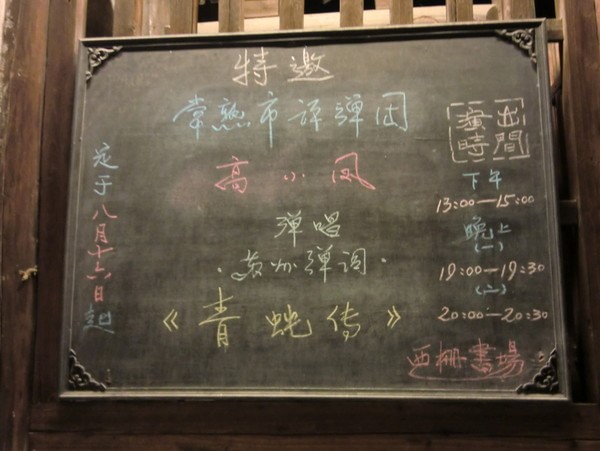 特邀
常熟市评弹团
高小凤
弹唱
·苏州弹词·
《青蛇传》
定于八月十六日起
演出
時間
下午
13:00—15:00
晚上
(一)
19:00—19:30
(二)
20:00—20:30
西栅書場